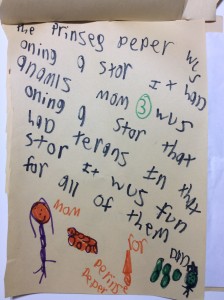 the Prinseg peper wus
oning a stor It had
anamls mom 3 wus
oning a stor that
had terans In that
stor It wus fun
for all of them
mom for
perins
peper